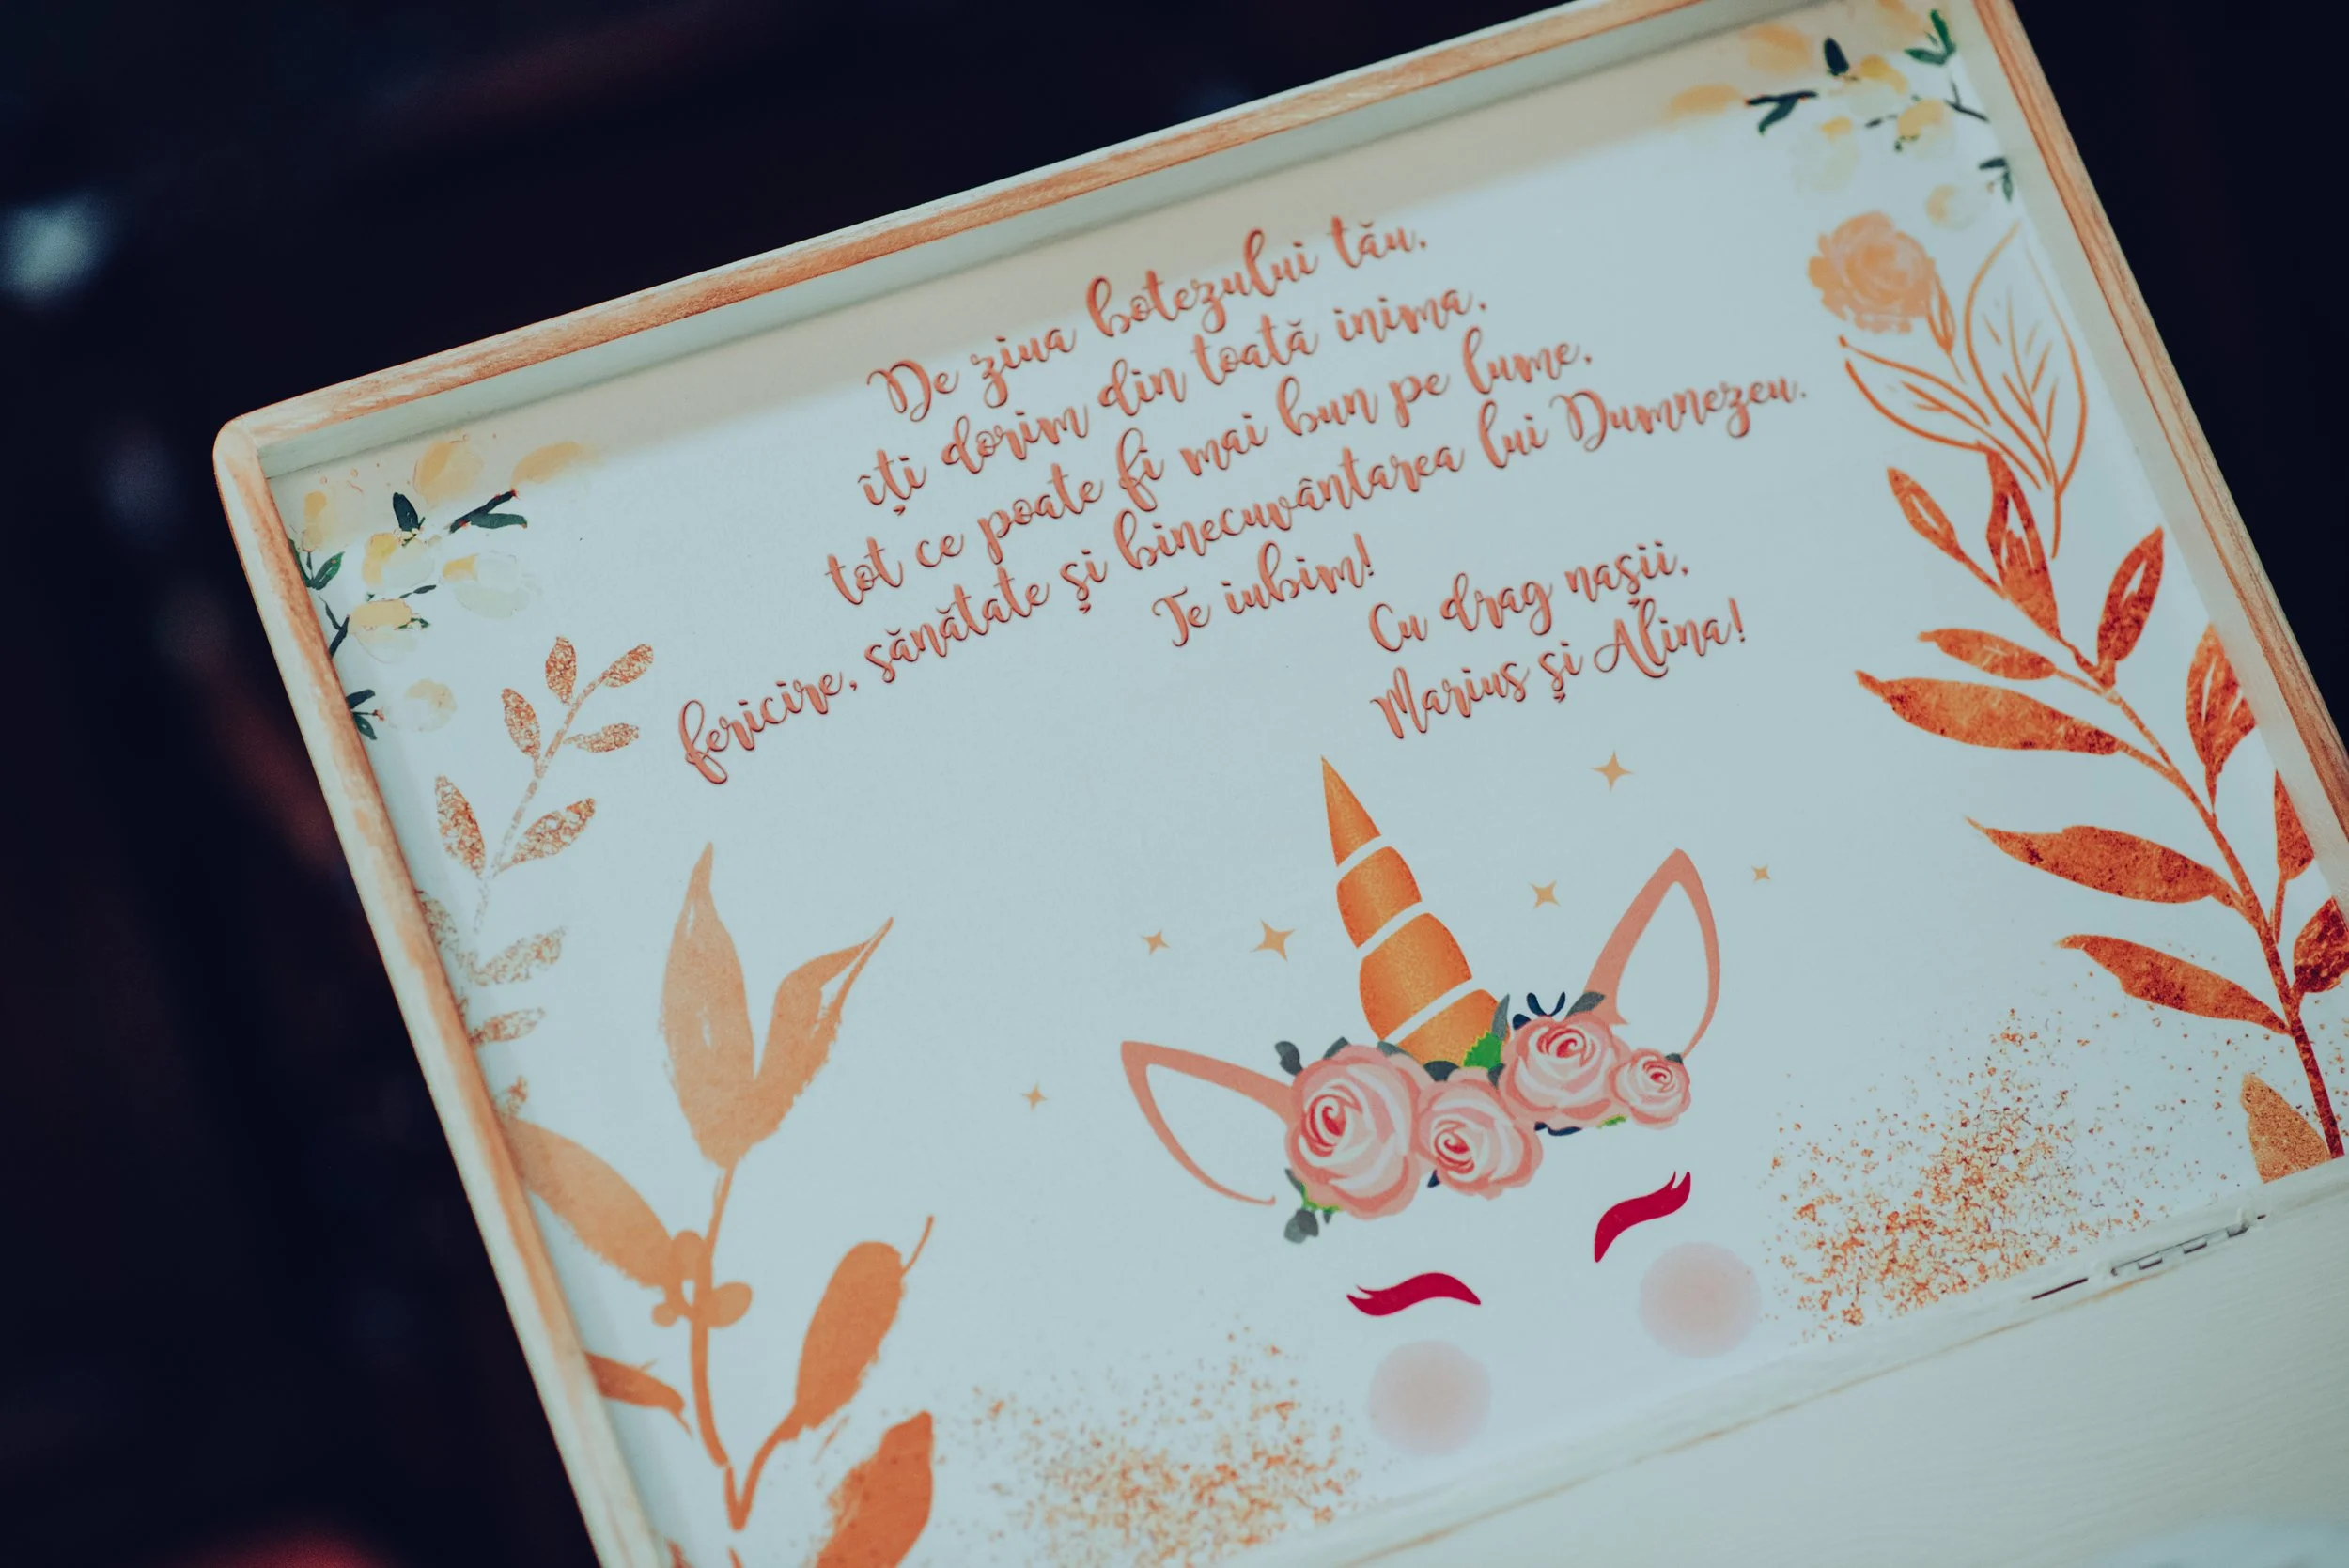 De ziua botezului tău,
îți dorim din toată inima,
tot ce poate fi mai bun pe lume,
fericire, sănătate și binecuvântarea lui Dumnezeu.
Te iubim!
Cu drag nașii,
Marius și Alina!